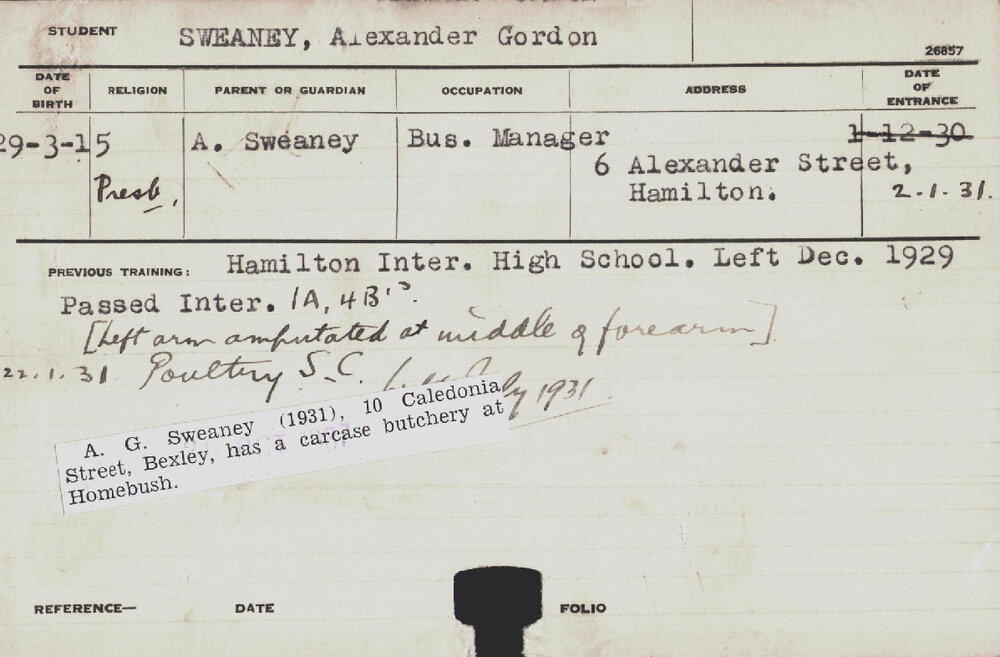 STUDENT SWEANEY, Alexander Gordon
26857
DATE OF BIRTH RELIGION PARENT OR GUARDIAN OCCUPATION ADDRESS DATE OF ENTRANCE
29-3-15 A. Sweaney Bus. Manager 1-12-30
6 Alexander Street,
Presb, Hamilton. 2.1.31.
PREVIOUS TRAINING: Hamilton Inter. High School. Left Dec. 1929
Passed Inter. 1A, 4B's.
[Left arm amputated at middle of forearm]
22.1.31 Poultry S.C. 1931
A. G. Sweaney (1931), 10 Caledonia
Street, Bexley, has a carcase butchery at
Homebush.
REFERENCE— DATE FOLIO